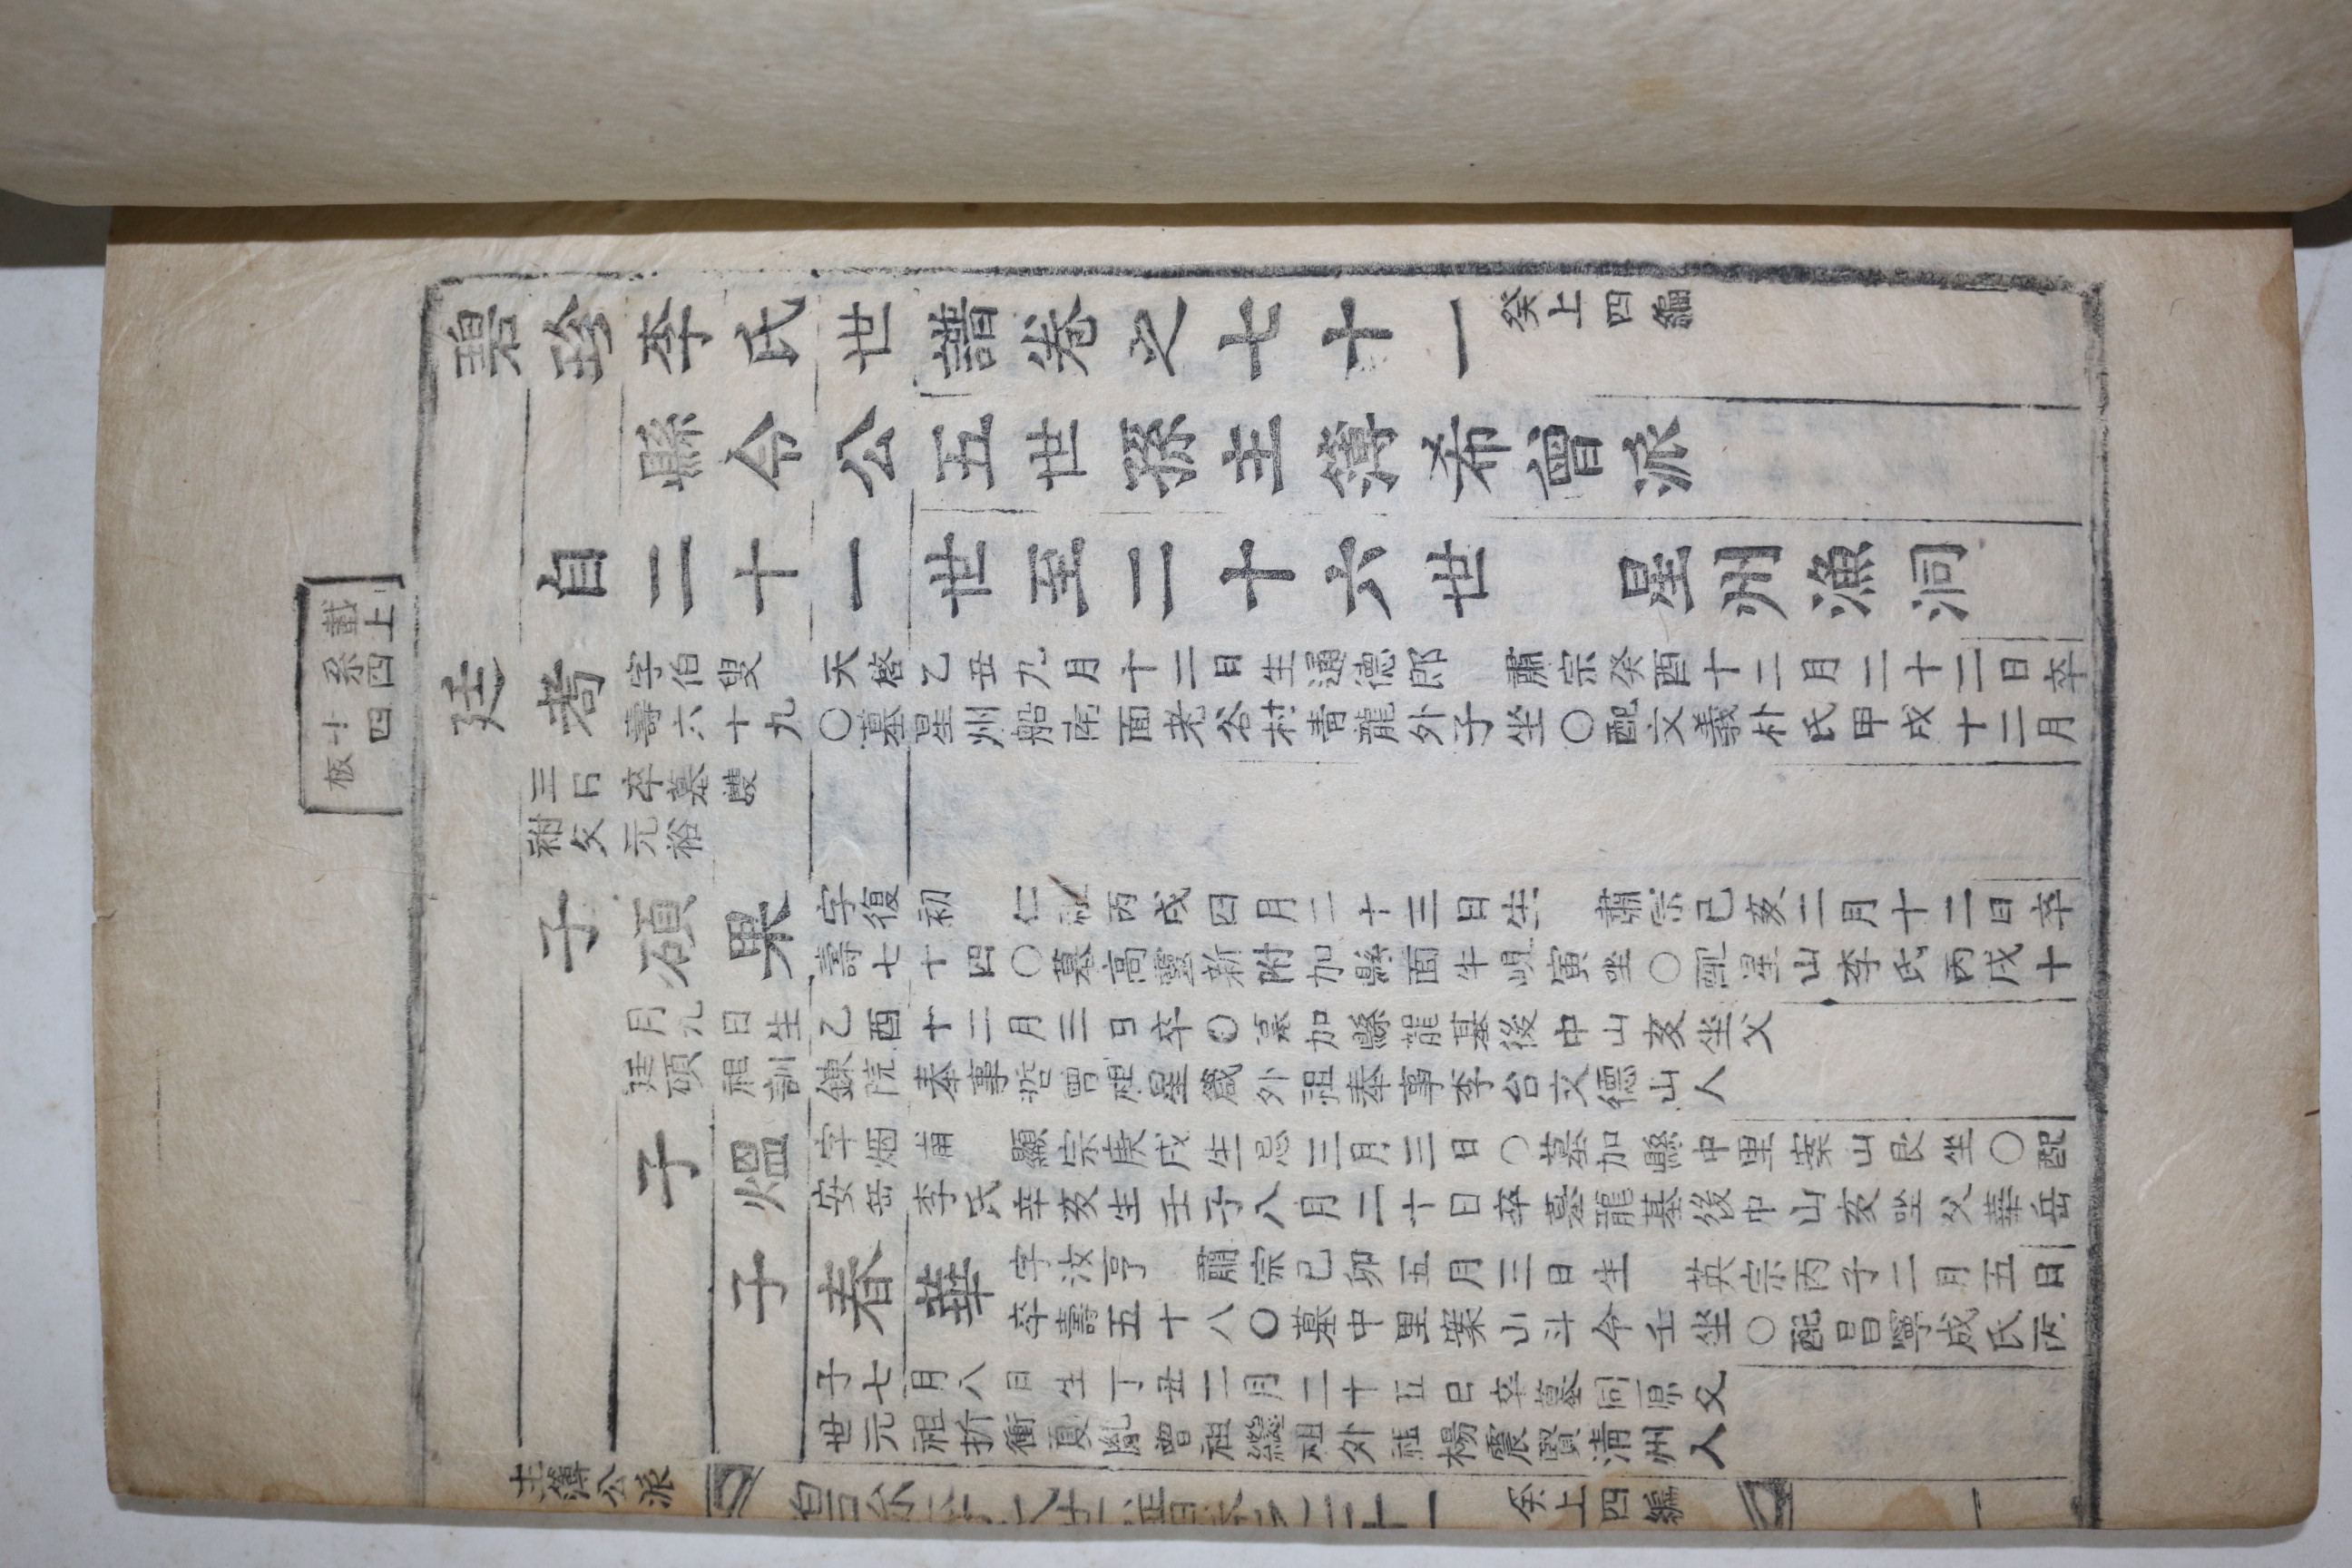 碧珍李氏世譜卷之七十一 癸上四編
縣令公五世孫主簿希曾派
自二十一世至二十六世 星州漁洞
載上
系四
十四
板
廷耉
字伯叟 天啓乙丑九月十二日生通德郎 肅宗癸酉十二月二十二日卒
壽六十九〇墓星州船南面老谷村青龍外子坐〇配文義朴氏甲戌十二月
三日卒墓雙
祔父元裕
子碩果
字復初 仁祖丙戌四月二十三日生 肅宗己亥二月十二日卒
壽七十四〇墓高靈新附加縣面牛峴寅坐〇配星山李氏丙戌十
月九日生乙酉十二月三日卒〇墓加縣龍基後中山亥坐父
廷碩祖訓鍊院奉事喆曾祖星箴外祖奉事李台文德山人
子熅
字烟甫 顯宗庚戌生忌三月三日〇墓加縣中里案山艮坐〇配
安岳李氏辛亥生壬子八月二十日卒墓龍基後中山亥坐父華岳
子春華
字汝亨 肅宗己卯五月三日生 英宗丙子二月五日
卒壽五十八〇墓中里案山斗令壬坐〇配昌寧成氏丙
子七月八日生丁丑二月二十五日卒墓同原父
世元祖折衝夏胤曾祖繼祖外祖楊震賢清州人
主簿公派
癸上四編
一